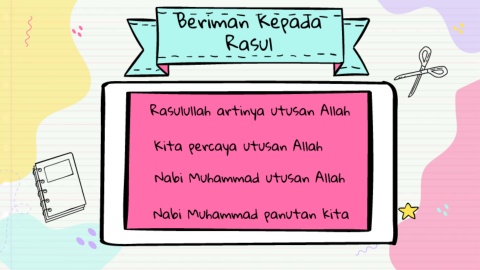 Beriman Kepada
Rasul
Rasulullah artinya utusan Allah
Kita percaya utusan Allah
Nabi Muhammad utusan Allah
Nabi Muhammad panutan kita